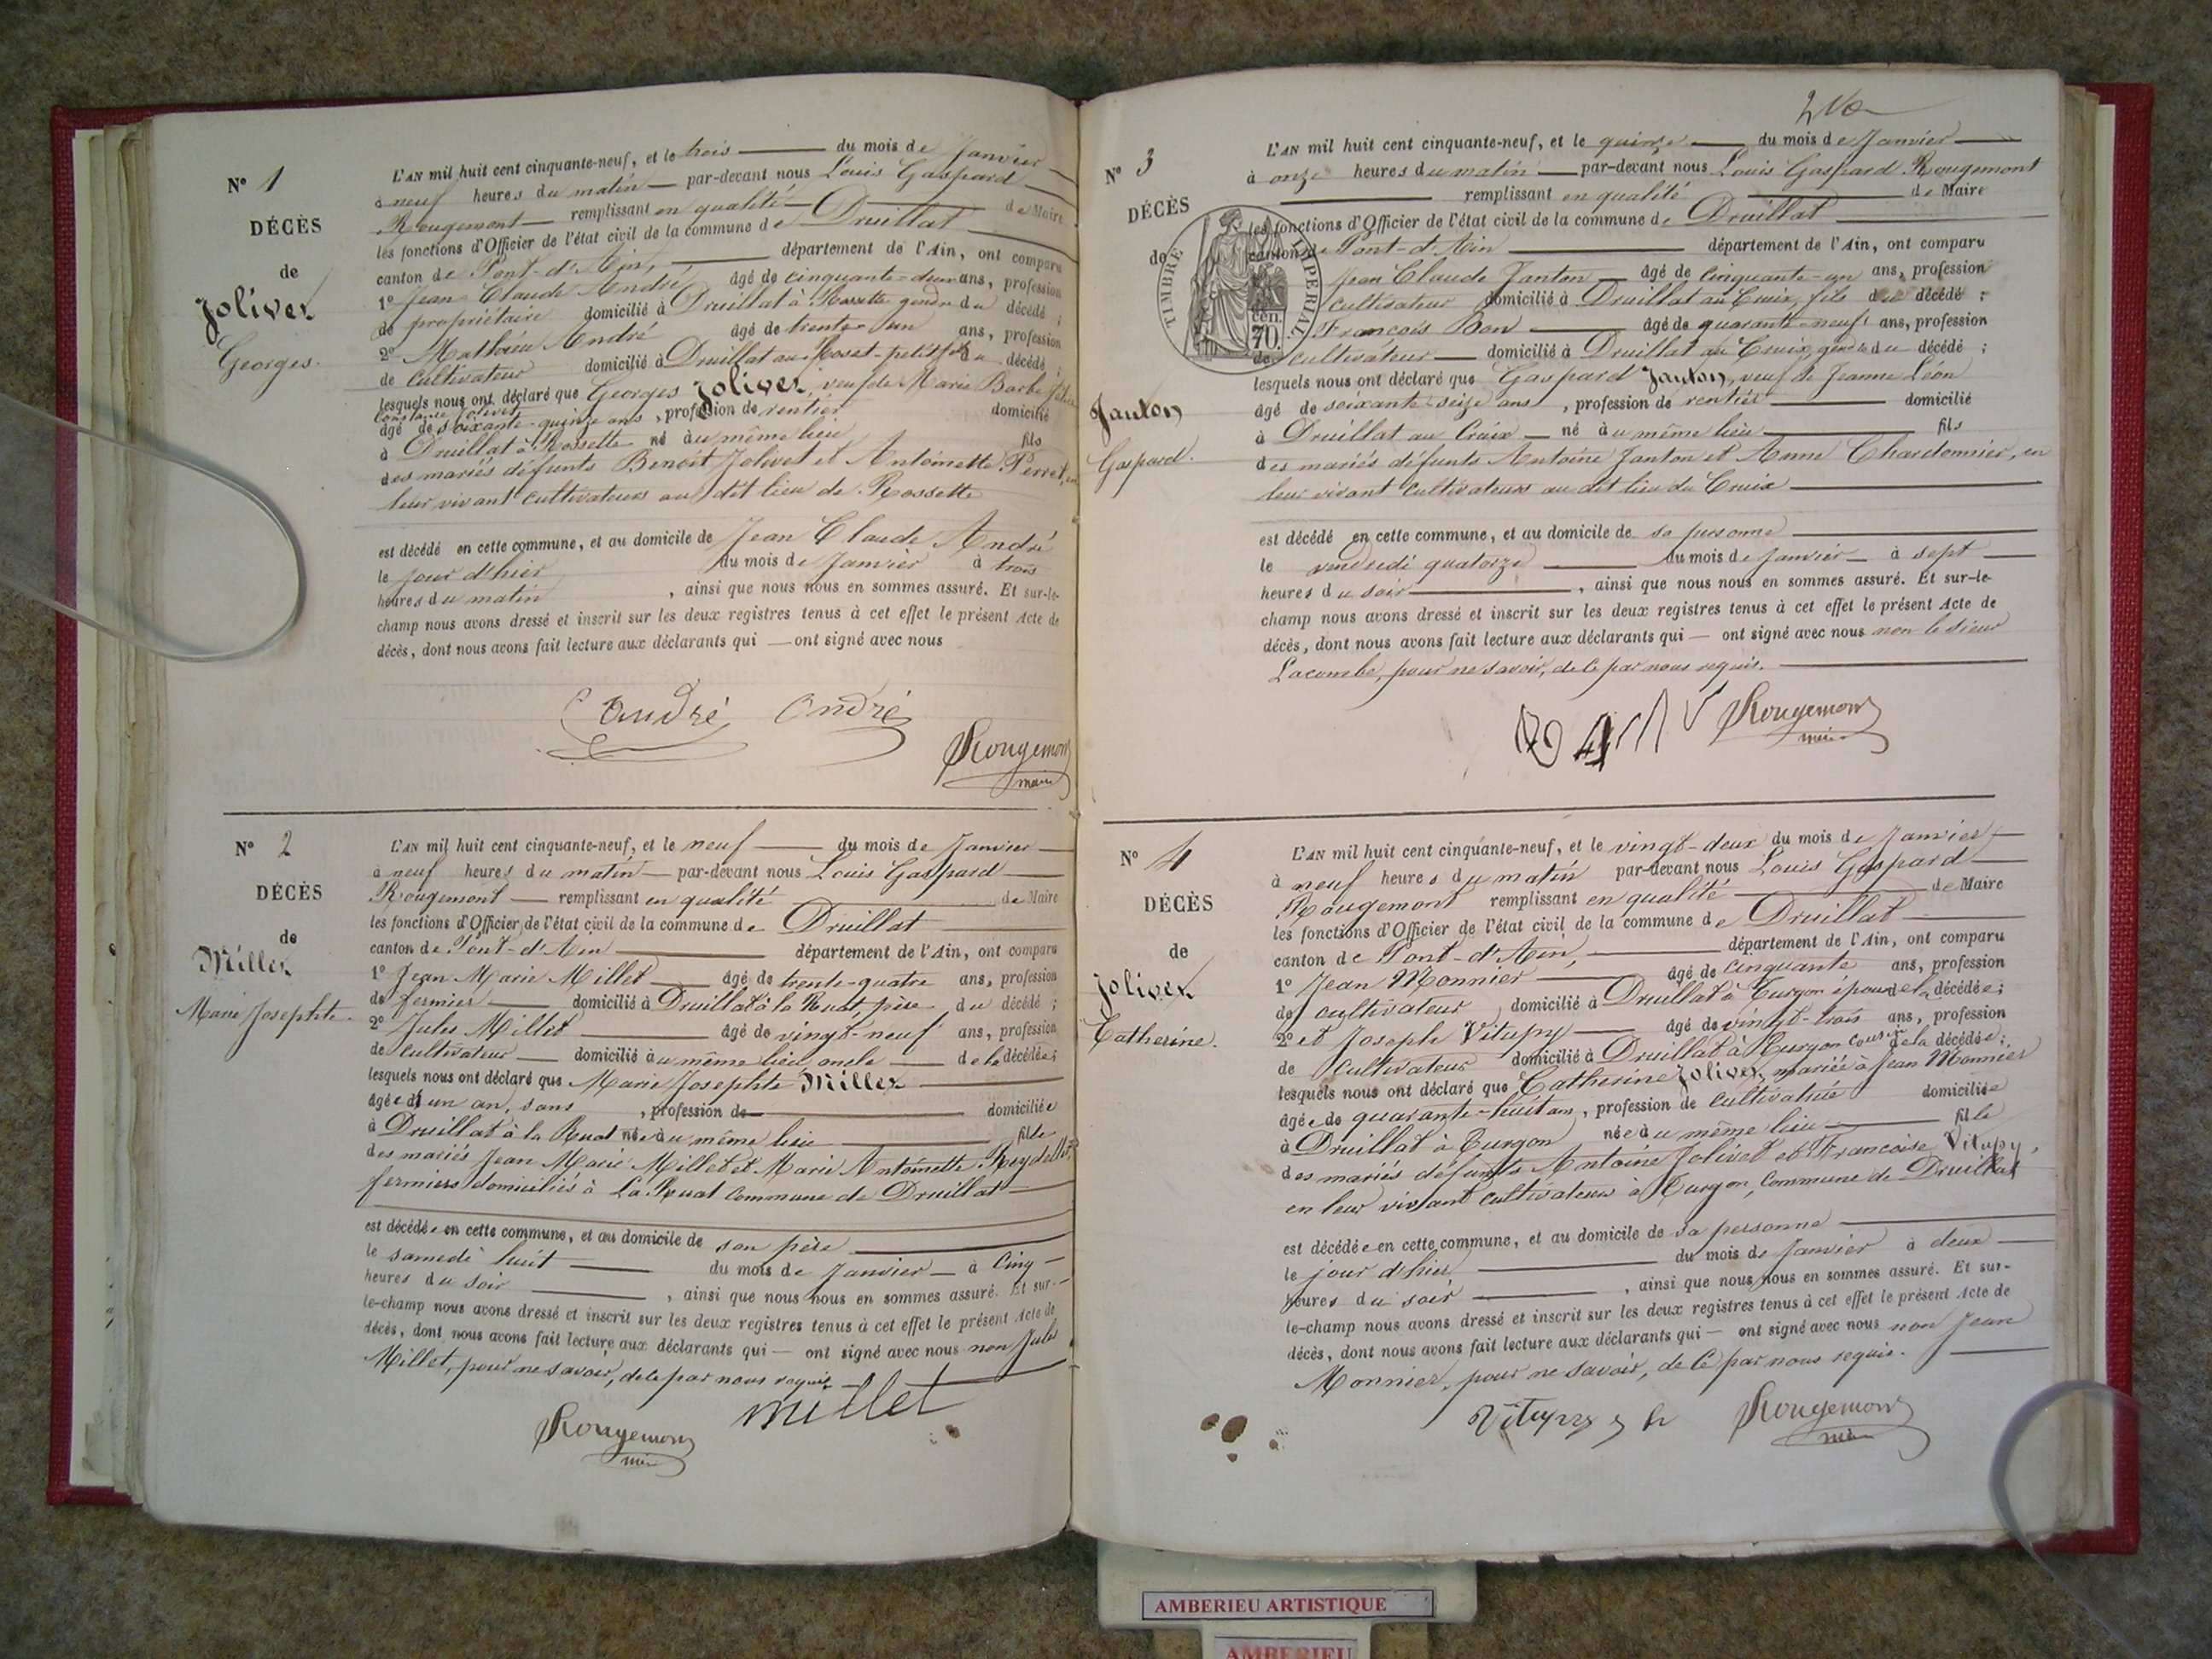 Nº 1
DÉCÈS
de
Jolivet
Georges.
L'AN mil huit cent cinquante-neuf, et le trois du mois de Janvier
à neuf heures du matin par-devant nous Louis Gaspard
Rougemont remplissant en qualité de Maire
les fonctions d'Officier de l'état civil de la commune de Druillat
canton de Pont-d'Ain, département de l'Ain, ont comparu
1º Jean Claude André âgé de cinquante-deux ans, profession
de propriétaire domicilié à Druillat à Rossette gendre du décédé ;
2º Mathieu André âgé de trente-un ans, profession
de cultivateur domicilié à Druillat au petit-fils du décédé ;
lesquels nous ont déclaré que Georges Jolivet, veuf de Marie Barbe
Jolivet
âgé de soixante-quinze ans, profession de rentier domicilié
à Druillat à Rossette né au même lieu fils
des mariés défunts Benoit Jolivet et Antoinette Perret, en
leur vivant cultivateurs au dit lieu de Rossette
est décédé en cette commune, et au domicile de Jean Claude André
le jour d'hier du mois de Janvier à trois
heures du matin, ainsi que nous nous en sommes assuré. Et sur-le-
champ nous avons dressé et inscrit sur les deux registres tenus à cet effet le présent Acte de
décès, dont nous avons fait lecture aux déclarants qui — ont signé avec nous
André André
Rougemont
maire
Nº 2
DÉCÈS
de
Millet
Marie Josephte.
L'AN mil huit cent cinquante-neuf, et le neuf du mois de Janvier
à neuf heures du matin par-devant nous Louis Gaspard
Rougemont remplissant en qualité de Maire
les fonctions d'Officier de l'état civil de la commune de Druillat
canton de Pont-d'Ain département de l'Ain, ont comparu
1º Jean Marie Millet âgé de trente-quatre ans, profession
de fermier domicilié à Druillat à la Ruat, père du décédé ;
2º Jules Millet âgé de vingt-neuf ans, profession
de cultivateur domicilié au même lieu, oncle de la décédée ;
lesquels nous ont déclaré que Marie Josephte Millet
âgée d'un an, sans, profession de domiciliée
à Druillat à la Ruat née au même lieu fille
des mariés Jean Marie Millet et Marie Antoinette Reydellet,
fermiers domiciliés à La Ruat commune de Druillat
est décédée en cette commune, et au domicile de son père
le samedi huit du mois de Janvier à cinq
heures du soir, ainsi que nous nous en sommes assuré. Et sur-
le-champ nous avons dressé et inscrit sur les deux registres tenus à cet effet le présent Acte de
décès, dont nous avons fait lecture aux déclarants qui — ont signé avec nous non Jules
Millet, pour ne savoir, de ce par nous requis.
Rougemont millet
maire
Nº 3
DÉCÈS
de
Janton
Gaspard.
TIMBRE IMPERIAL
70 cen
L'AN mil huit cent cinquante-neuf, et le quinze du mois de Janvier
à onze heures du matin par-devant nous Louis Gaspard Rougemont
remplissant en qualité de Maire
les fonctions d'Officier de l'état civil de la commune de Druillat
canton de Pont-d'Ain département de l'Ain, ont comparu
Jean Claude Janton âgé de cinquante-un ans, profession
cultivateur domicilié à Druillat au Cruix, fils du décédé ;
François Bon âgé de quarante-neuf ans, profession
de cultivateur domicilié à Druillat au Cruix, gendre du décédé ;
lesquels nous ont déclaré que Gaspard Janton, veuf de Jeanne Léon
âgé de soixante-seize ans, profession de rentier domicilié
à Druillat au Cruix né au même lieu fils
des mariés défunts Antoine Janton et Anne Chardonnier, en
leur vivant cultivateurs au dit lieu du Cruix
est décédé en cette commune, et au domicile de sa personne
le vendredi quatorze du mois de Janvier à sept
heures du soir, ainsi que nous nous en sommes assuré. Et sur-le-
champ nous avons dressé et inscrit sur les deux registres tenus à cet effet le présent Acte de
décès, dont nous avons fait lecture aux déclarants qui — ont signé avec nous non le sieur
Lacombe, pour ne savoir, de ce par nous requis.
Rougemont
maire
Nº 4
DÉCÈS
de
Jolivet
Catherine.
L'AN mil huit cent cinquante-neuf, et le vingt-deux du mois de Janvier
à neuf heures du matin par-devant nous Louis Gaspard
Rougemont remplissant en qualité de Maire
les fonctions d'Officier de l'état civil de la commune de Druillat
canton de Pont-d'Ain, département de l'Ain, ont comparu
1º Jean Monnier âgé de cinquante ans, profession
de cultivateur domicilié à Druillat à Turgon époux de la décédée ;
2º et Joseph Vitupy âgé de vingt-trois ans, profession
de cultivateur domicilié à Druillat à Turgon cousin de la décédée ;
lesquels nous ont déclaré que Catherine Jolivet, mariée à Jean Monnier
âgée de quarante-huit ans, profession de cultivatrice domiciliée
à Druillat à Turgon née au même lieu fille
des mariés défunts Antoine Jolivet et Françoise Vitupy,
en leur vivant cultivateurs à Turgon, commune de Druillat
est décédée en cette commune, et au domicile de sa personne
le jour d'hier du mois de Janvier à deux
heures du soir, ainsi que nous nous en sommes assuré. Et sur-
le-champ nous avons dressé et inscrit sur les deux registres tenus à cet effet le présent Acte de
décès, dont nous avons fait lecture aux déclarants qui — ont signé avec nous non Jean
Monnier, pour ne savoir, de ce par nous requis.
Rougemont
maire
AMBERIEU ARTISTIQUE
AMBERIEU